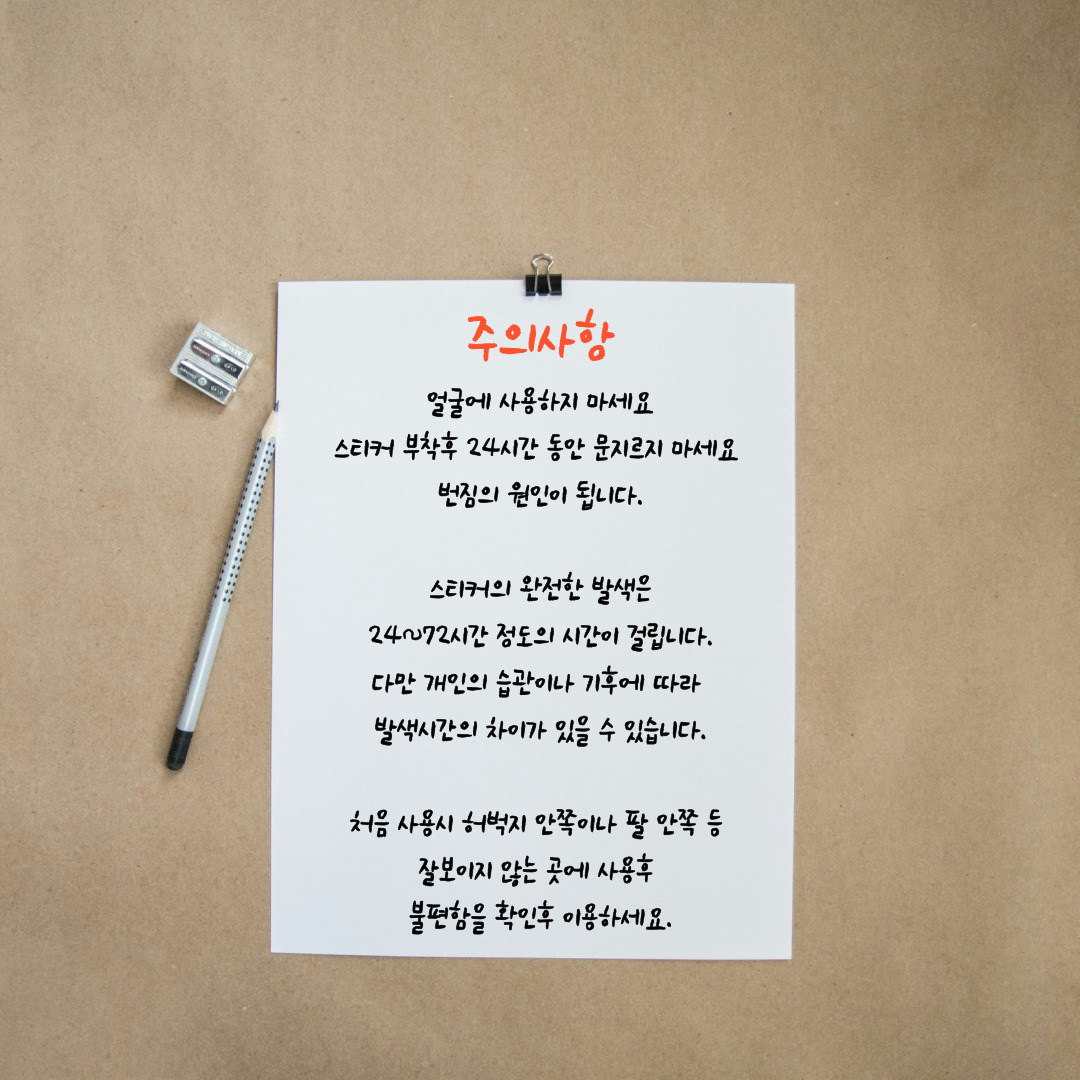 주의사항
얼굴에 사용하지 마세요
스티커 부착후 24시간 동안 문지르지 마세요
번짐의 원인이 됩니다.
스티커의 완전한 발색은
24~72시간 정도의 시간이 걸립니다.
다만 개인의 습관이나 기후에 따라
발색시간의 차이가 있을 수 있습니다.
처음 사용시 허벅지 안쪽이나 팔 안쪽 등
잘보이지 않는 곳에 사용후
불편함을 확인후 이용하세요.